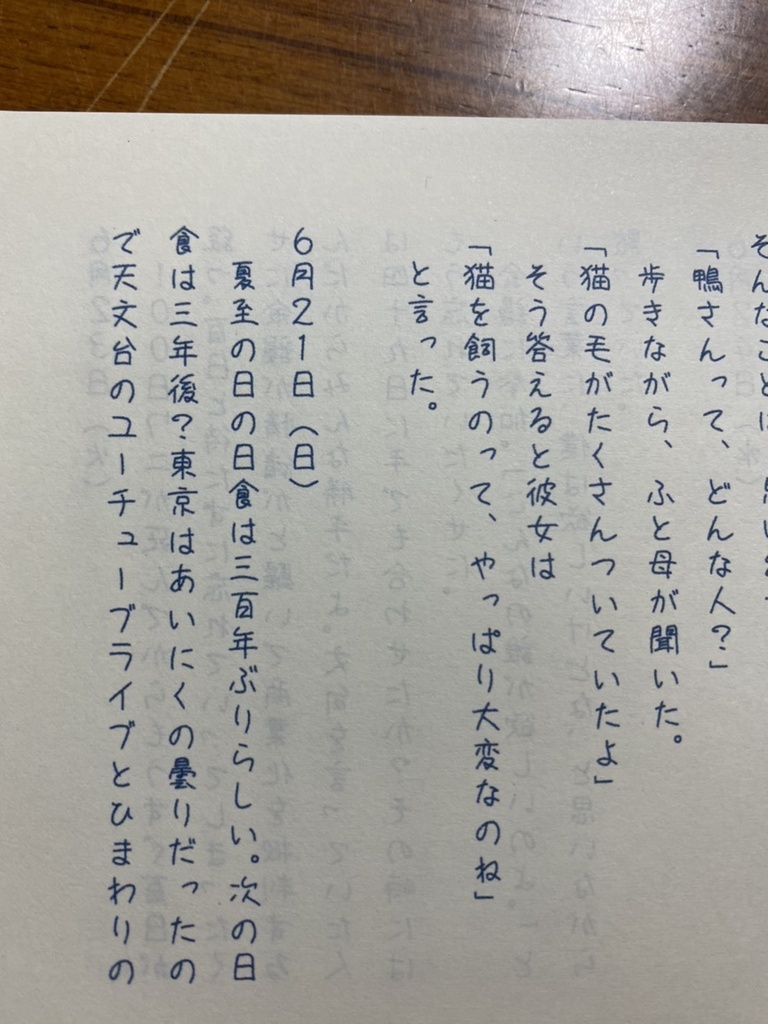 そんなことは、思い
「鴨さんって、どんな人?」
歩きながら、ふと母が聞いた。
「猫の毛がたくさんついていたよ」
そう答えると彼女は
「猫を飼うのって、やっぱり大変なのね」
と言った。
6月21日(日)
夏至の日の日食は三百年ぶりらしい。次の日
食は三年後?東京はあいにくの曇りだったの
で天文台のユーチューブライブとひまわりの